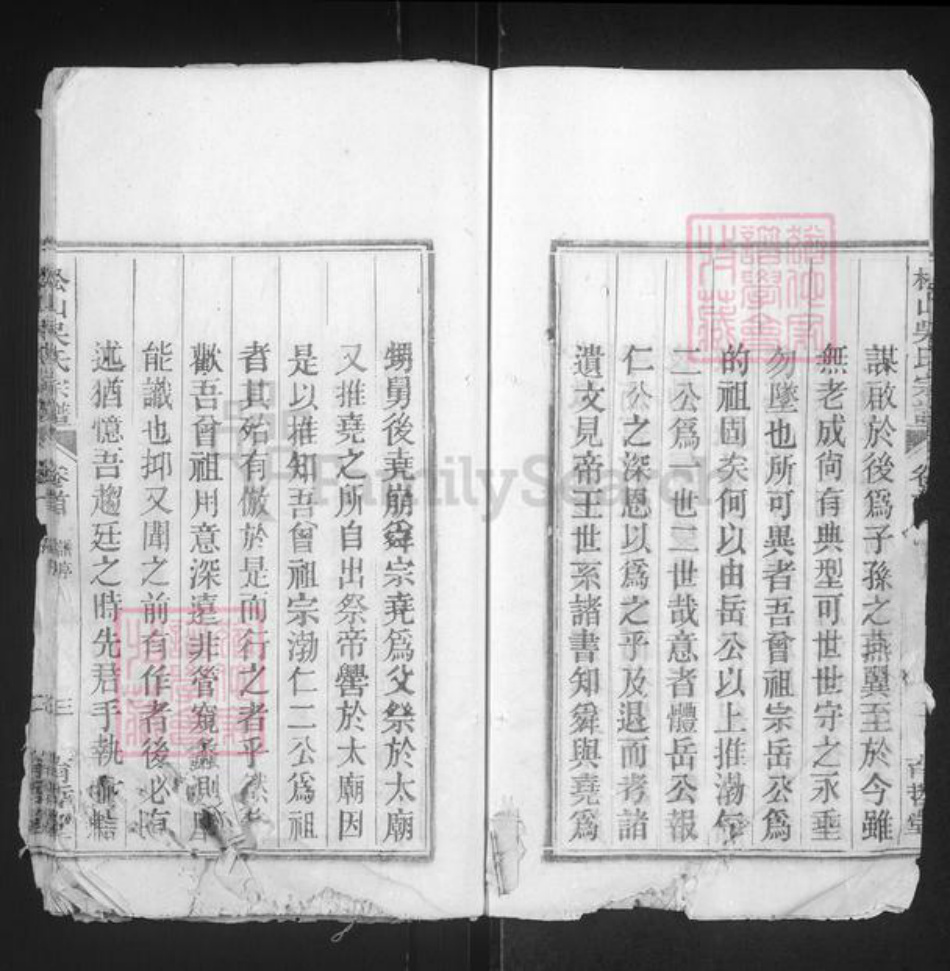 謀啟於後為子孫之燕翼至於今雖
無老成尚有典型可世世守之永垂
勿墜也所可異者吾曾祖宗岳公為
的祖固矣何以由岳公以上推渤仁
二公為一世二世哉意者體岳公報
仁公之深恩以為之乎及退而考諸
遺文見帝王世系諸書知舜與堯為
甥舅後堯崩舜宗堯為父祭於太廟
又推堯之所自出祭帝嚳於太廟因
是以推知吾曾祖宗渤仁二公為祖
者其殆有倣於是而行之者乎
歡吾曾祖用意深遠非管窺蠡測
能識也抑又聞之前有作者後必有
述猶憶吾趨廷之時先君手執
松山吳氏宗譜
卷首
三
育哲堂
FamilySearch